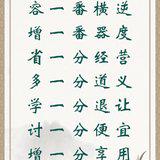 容一番横逆
增一番器度
省一分经营
多一分道义
学一分退让
讨一分便宜
增一分享用